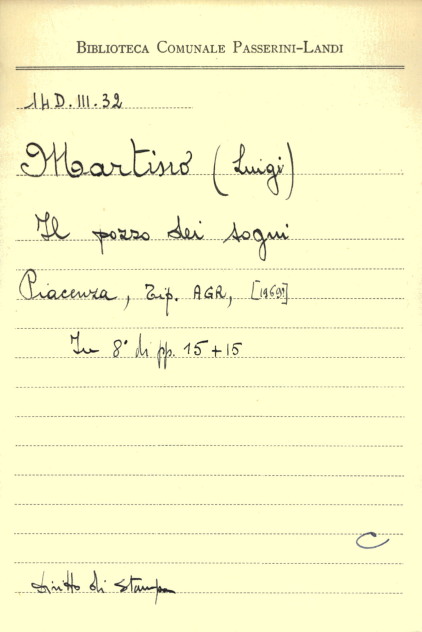 BIBLIOTECA COMUNALE PASSERINI-LANDI
14D.III.32
Martinò (Luigi)
Il pozzo dei sogni
Piacenza, Tip. AGR,
In 8° di pp. 15+15
C
diritto di stampa